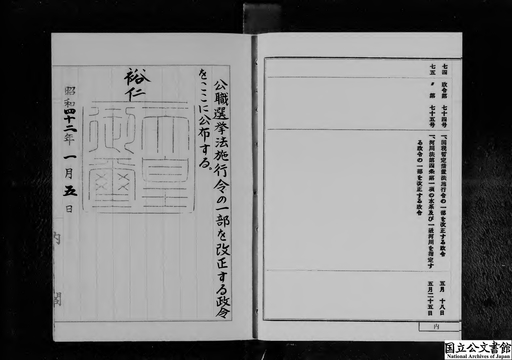 七四 政令第 七十四号 「関税暫定措置法施行令の一部を改正する政令 五月 十八日
七五 〃 第 七十五号 「河川法第四条第一項の水系及び一級河川を指定する政令の一部を改正する政令 五月二十五日
内
公職選挙法施行令の一部を改正する政令
をここに公布する。
裕仁
天皇御璽
昭和四十二年一月五日
内閣
国立公文書館
National Archives of Japan